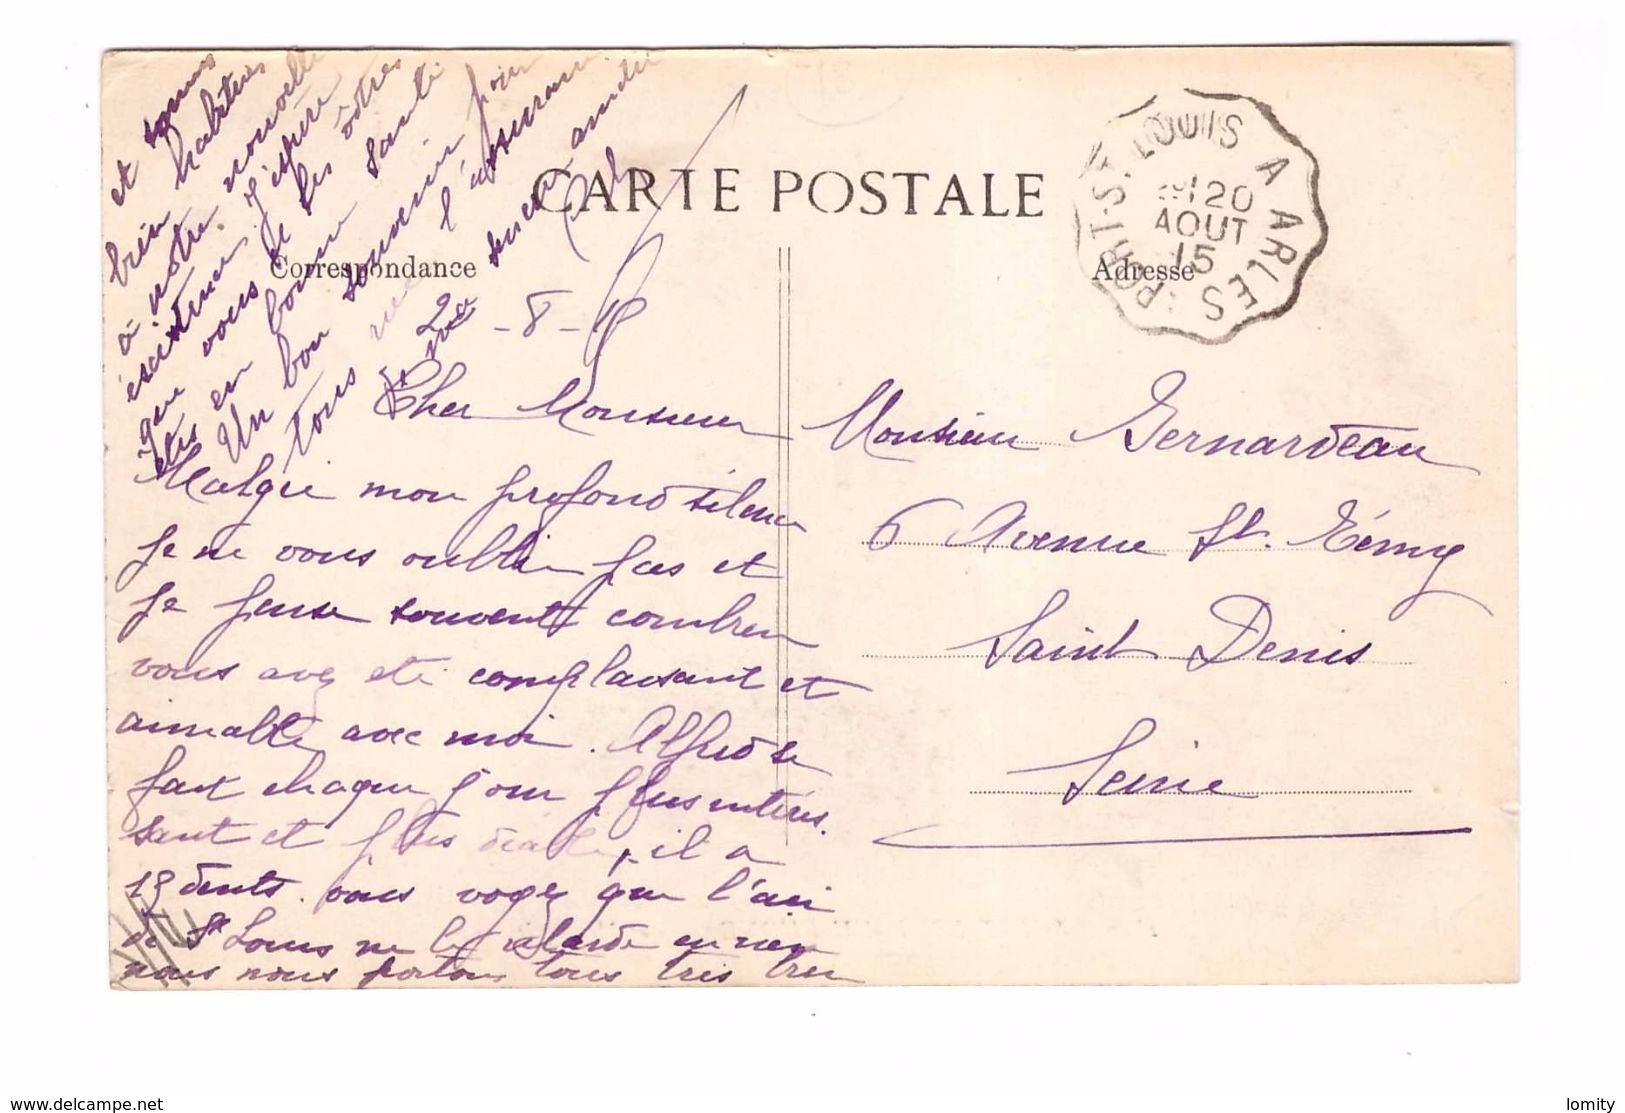 CARTE POSTALE
Correspondance
Adresse
PORT-ST-LOUIS A ARLES
20
AOUT
15
2 - 8 - 15
Cher Monsieur
Malgré mon profond silence
je ne vous oublie pas et
je pense souvent combien
vous avez été complaisant et
aimable avec moi. Alfred se
fait chaque jour plus intéres.
sant et plus, il a
dents. vous voyez que l'air
de St Louis ne le retarde en rien
nous nous portons tous très très
et sommes
bien habitués
à notre nouvelle
existence j'espère
que vous et les vôtres
êtes en bonne santé
Un bon souvenir pour
tous l'assurance
sincère amitié
Monsieur Bernardeau
6 Avenue St. Rémy
Saint Denis
Seine
www.delcampe.net
lomity